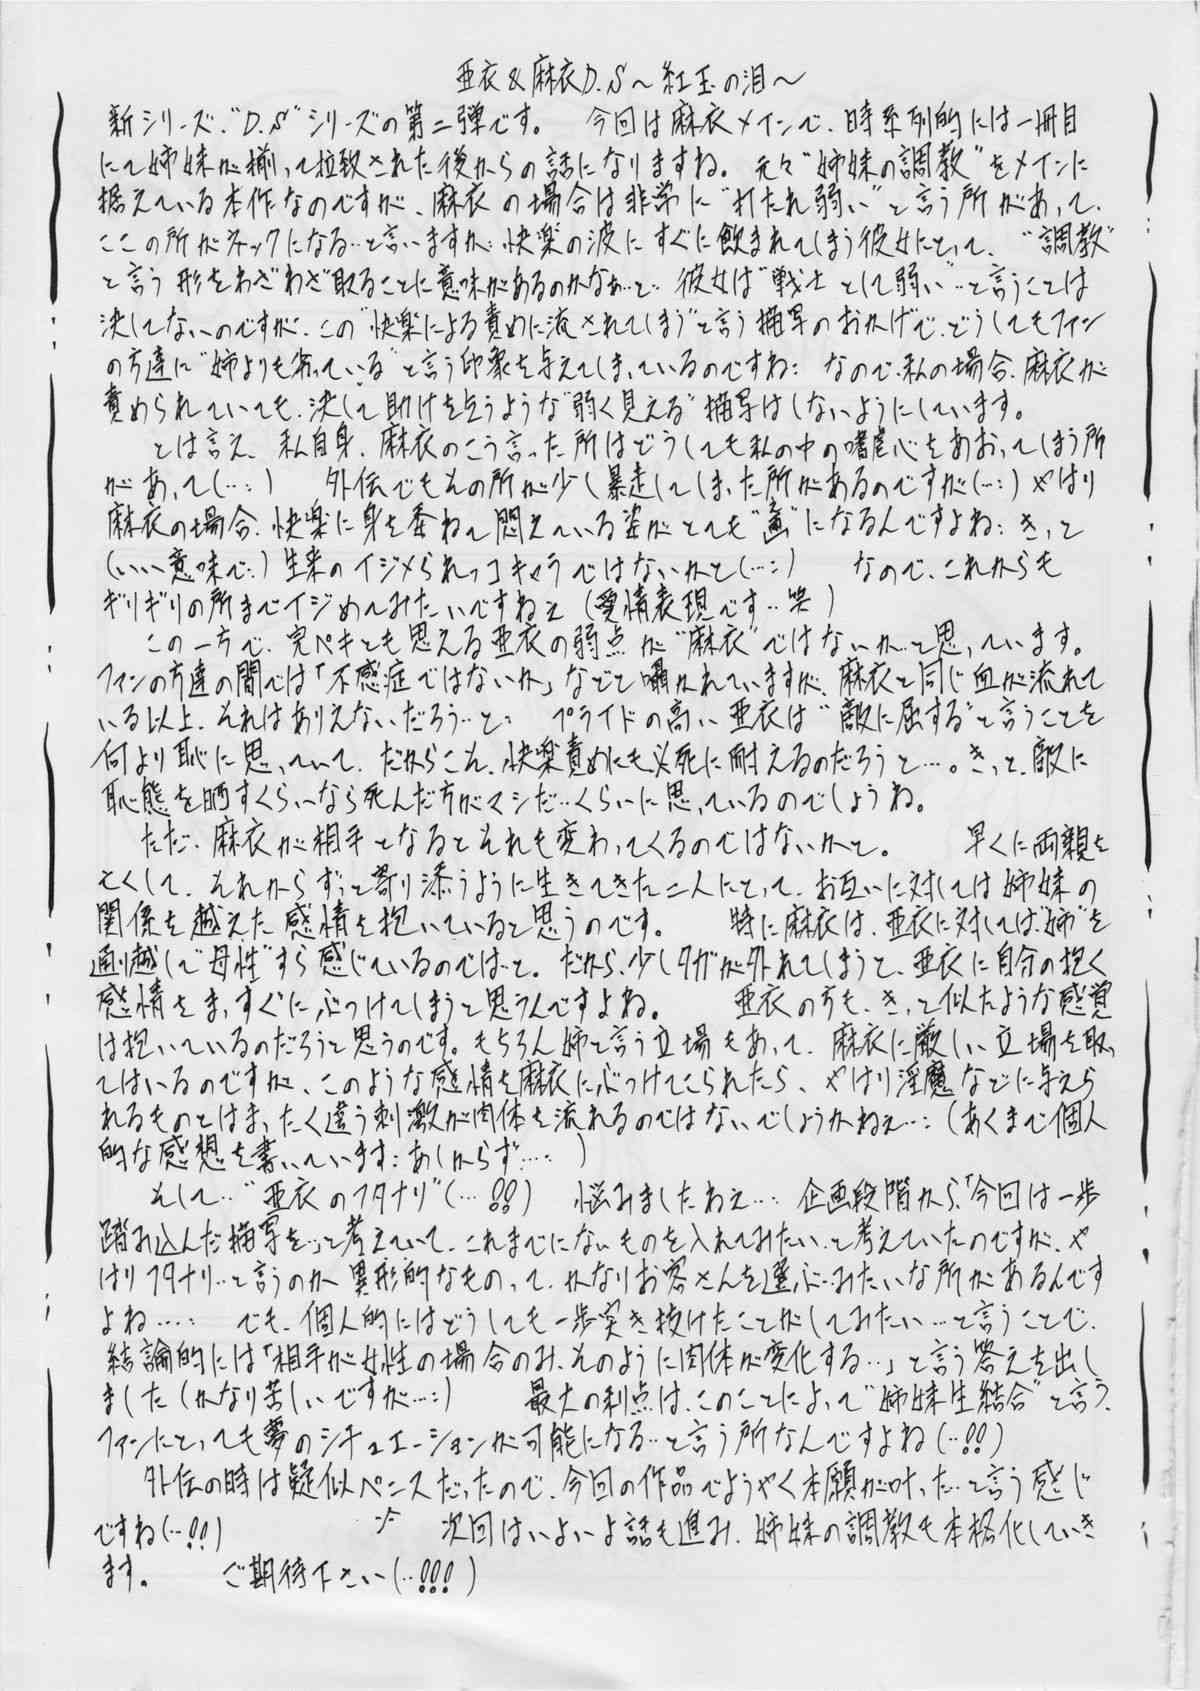 亜衣&麻衣D.S～紅玉の泪～
新シリーズ、"D.S"シリーズの第二弾です。 今回は麻衣メインで、時系列的には一冊目
にて姉妹が揃って拉致された後からの話になりますね。 元々"姉妹の調教"をメインに
据えている本作なのですが、麻衣の場合は非常に"打たれ弱い"と言う所があって、
ここの所がネックになる…と言いますか… 快楽の波にすぐに飲まれてしまう彼女にとって、"調教"
と言う形をわざわざ取ることに意味があるのかなぁ…と… 彼女は"戦士として弱い"…と言うことは
決してないのですが、この"快楽による責めに流されてしまう"と言う描写のおかげで、どうしてもファン
の方達に"姉よりも劣っている"と言う印象を与えてしまっているのですね… なので、私の場合、麻衣が
責められていても、決して助けを乞うような"弱く見える"描写はしないようにしています。
とは言え、私自身、麻衣のこう言った所はどうしても私の中の嗜虐心をあおってしまう所
があって(…;) 外伝でもその所が少し暴走してしまった所があるのですが(…;)やはり
麻衣の場合、快楽に身を委ねて悶えている姿がとても"画"になるんですよね… きっと
(いい意味で…)生来のイジメられっコキャラではないかと(…;) なので、これからも
ギリギリの所までイジめてみたいですねぇ(愛情表現です…笑)
この一方で、完ペキとも思える亜衣の弱点が"麻衣"ではないか…と思っています。
ファンの方達の間では「不感症ではないか」などと囁かれていますが、麻衣と同じ血が流れて
いる以上、それはありえないだろう…と… プライドの高い亜衣は"敵に屈する"と言うことを
何より恥に思っていて、だからこそ、快楽責めにも必死に耐えるのだろうと…。きっと、敵に
恥態を晒すくらいなら死んだ方がマシだ…くらいに思っているのでしょうね。
ただ、麻衣が相手となるとそれも変わってくるのではないかと。 早くに両親を
亡くして、それからずっと寄り添うように生きてきた二人にとって、お互いに対しては姉妹の
関係を越えた感情を抱いていると思うのです。 特に麻衣は、亜衣に対しては"姉"を
通り越して"母性"すら感じているのでは…と。だから、少しタガが外れてしまうと、亜衣に自分の抱く
感情をまっすぐにぶつけてしまうと思うんですよね。 亜衣の方も、きっと似たような感覚
は抱いているのだろうと思うのです。もちろん姉と言う立場もあって、麻衣に厳しい立場を取っ
てはいるのですが、このような感情を麻衣にぶつけてこられたら、やはり淫魔などに与えら
れるものとはまったく違う刺激が肉体を流れるのではないでしょうかねぇ…;(あくまで個人
的な感想を書いています; あしからず…;)
そして…"亜衣のフタナリ"(…!!) 悩みましたねぇ…; 企画段階から、「今回は一歩
踏み込んだ描写を…」と考えていて、これまでにないものを入れてみたい…と考えていたのですが、や
はりフタナリ…と言うのか異形的なものって、かなりお客さんを選ぶ…みたいな所があるんです
よね…; でも、個人的にはどうしても一歩突き抜けたことがしてみたい…と言うことで、
結論的には「相手が女性の場合のみ、そのように肉体が変化する…」と言う答えを出し
ました(かなり苦しいですが…;) 最大の利点は、このことによって"姉妹生結合"と言う、
ファンにとっても夢のシチュエーションが可能になる…と言う所なんですよね(…!!)
外伝の時は疑似ペニスだったので、今回の作品でようやく本願が叶った…と言う感じ
ですね(…!!) 次回はいよいよ話も進み、姉妹の調教も本格化していき
ます。 ご期待下さい(…!!!)